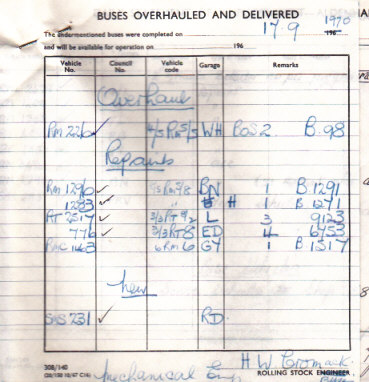 BUSES OVERHAULED AND DELIVERED
The undermentioned buses were completed on 17.9 1970 196
and will be available for operation on 196
Vehicle No. Council No. Vehicle code Garage Remarks
Overhaul
RM 226 ✓ WH BOS 2 B.98
Repaints
RM 1296 ✓ BN 1 B 1291
1283 ✓ " H 1 B 1271
RT 2517 ✓ L 3 9123
776 ✓ 3/3 RT 8 ED 4 6453
RMC 1463 6 RM 6 GY 1 B 1517
New
SMS 231 ✓ RD.
308/140
Mechanical Eng H W Cromack
ROLLING STOCK ENGINEER